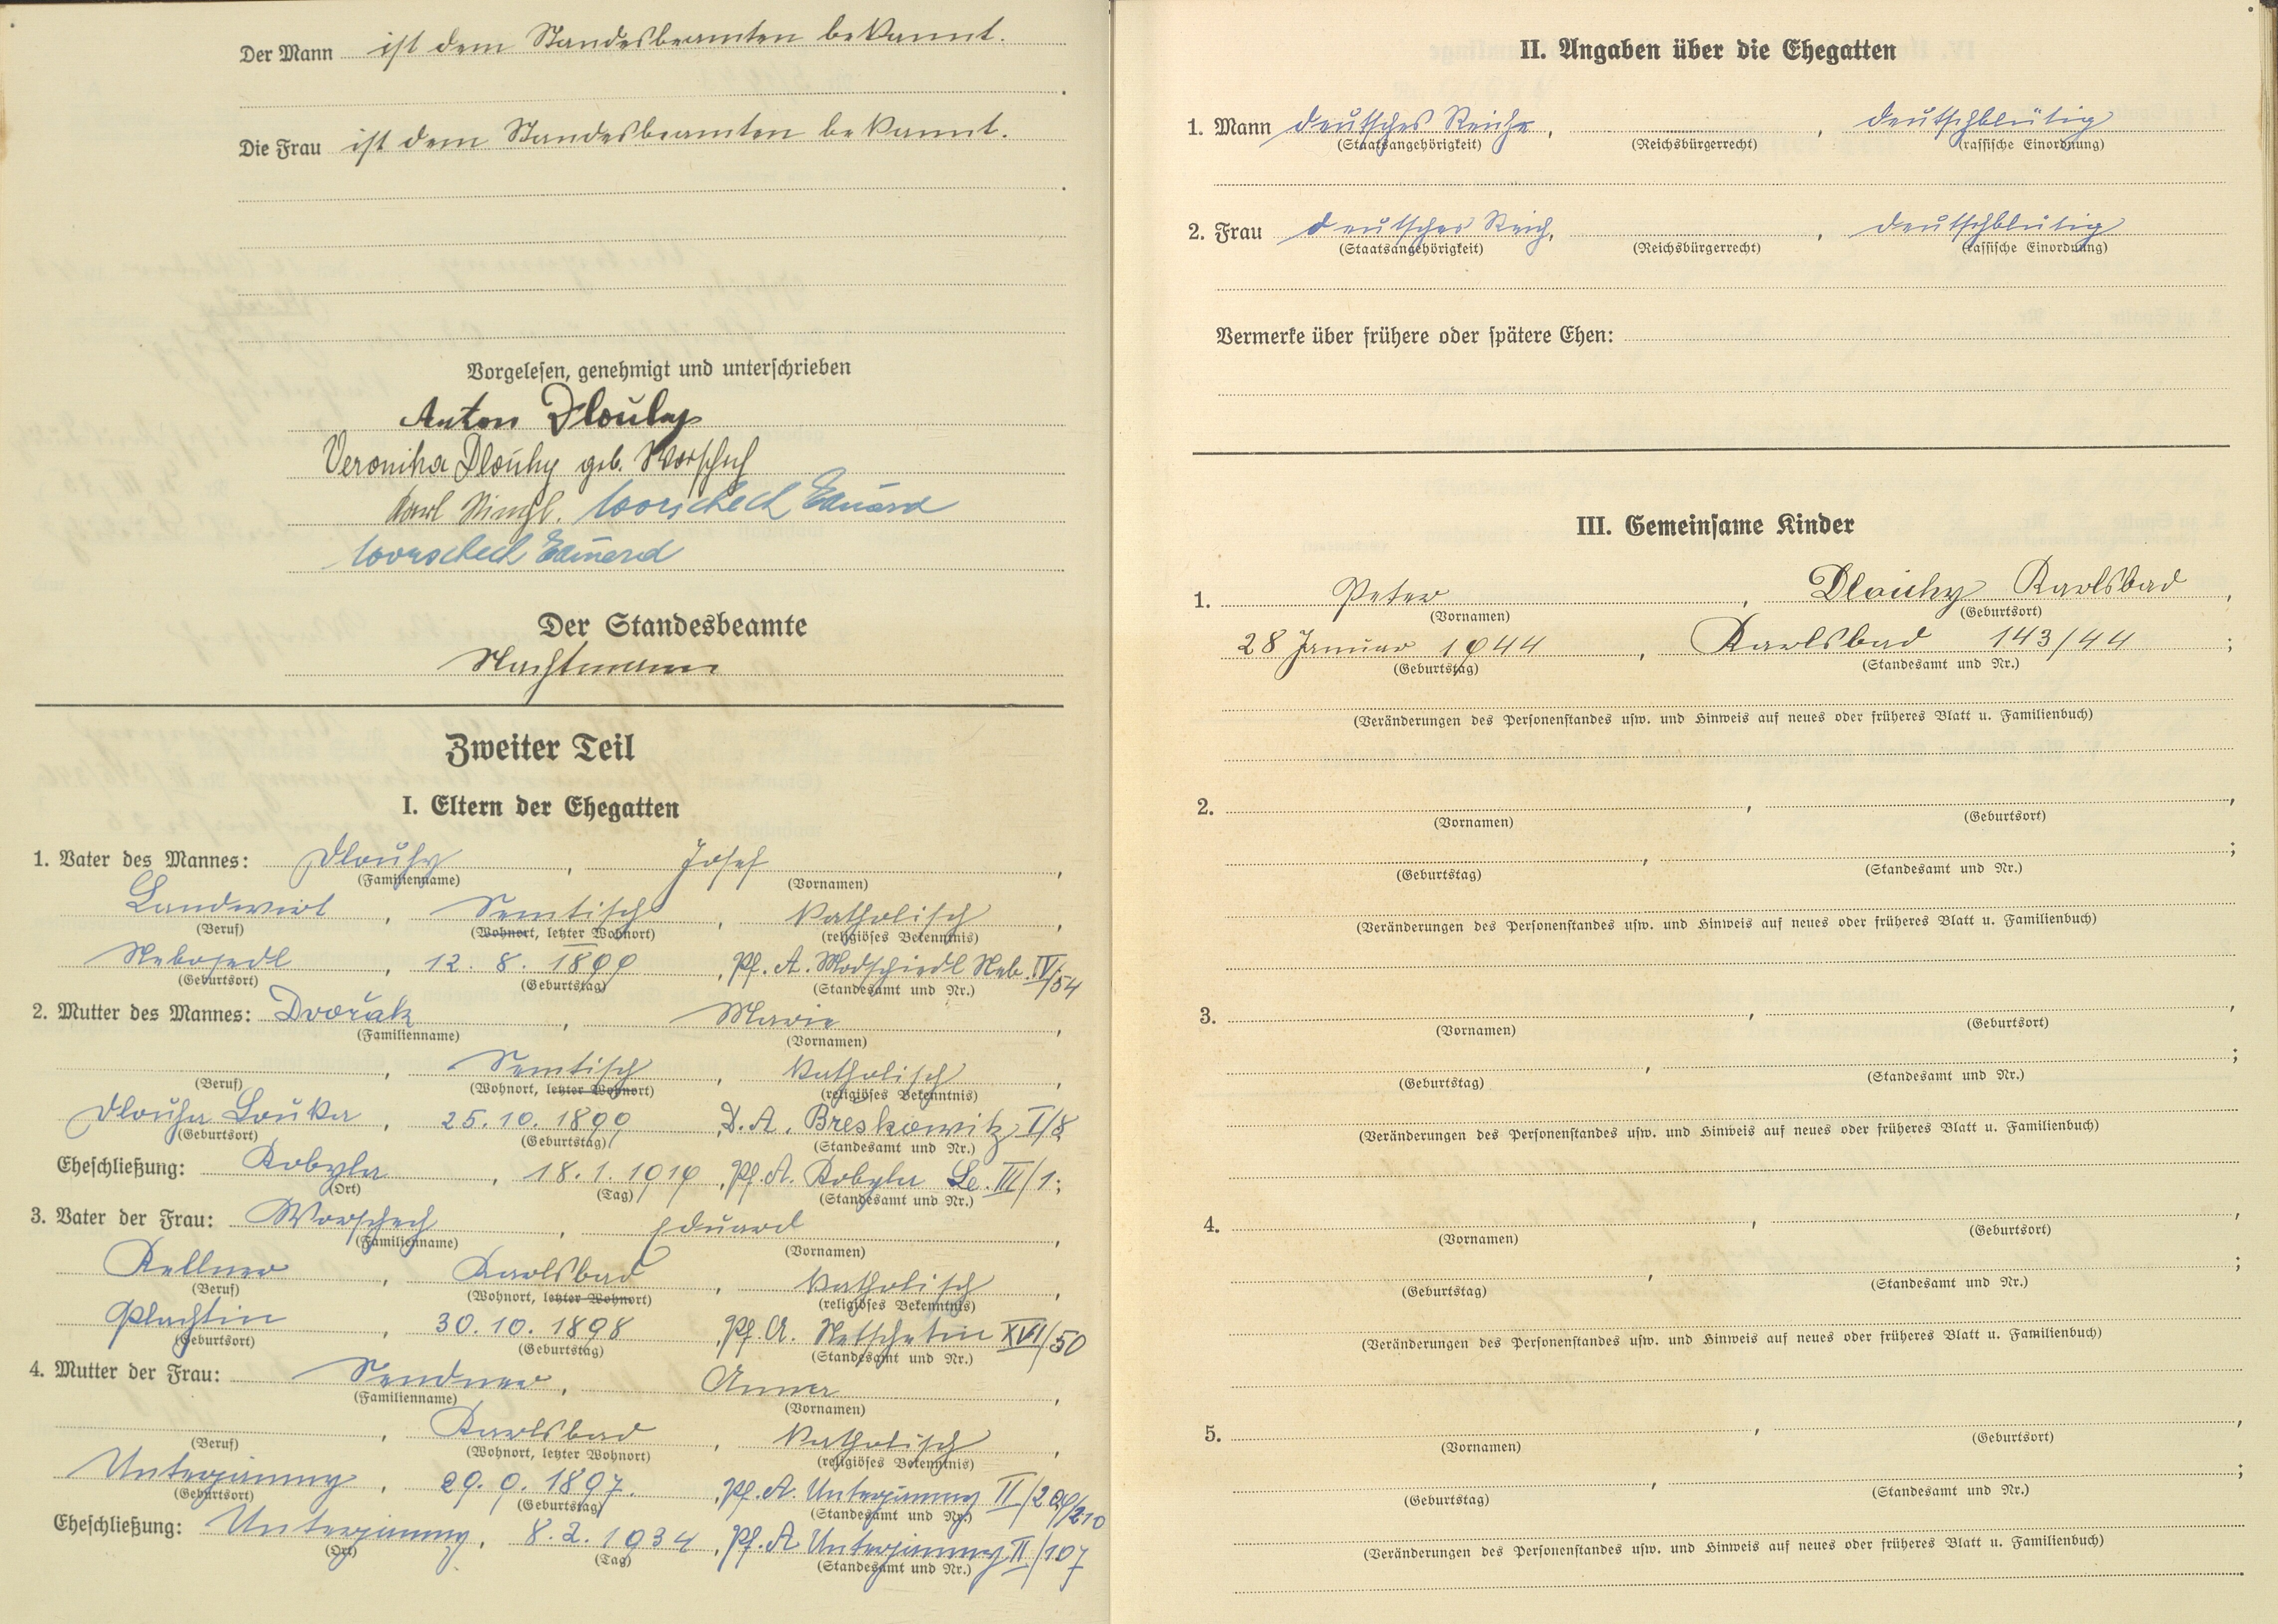 Der Mann ist dem Standesbeamten bekannt.
Die Frau ist dem Standesbeamten bekannt.
Vorgelesen, genehmigt und unterschrieben
Anton Dlouhy
Veronika Dlouhy geb. Worschech
Karl Worschech Eduard
Worschech Eduard
Der Standesbeamte
Nachtmann
Zweiter Teil
I. Eltern der Ehegatten
1. Vater des Mannes: Dlouhy, Josef,
(Familienname) (Vornamen)
Landwirt, Semtisch, katholisch,
(Beruf) (Wohnort, letzter Wohnort) (religiöses Bekenntnis)
Nebosedl, 12. 8. 1899, Pf. A. Modschiedl Neb. IV/54
(Geburtsort) (Geburtstag) (Standesamt und Nr.)
2. Mutter des Mannes: Dvořak, Marie,
(Familienname) (Vornamen)
, Semtisch, katholisch,
(Beruf) (Wohnort, letzter Wohnort) (religiöses Bekenntnis)
Dlouha Louka, 25. 10. 1899, D. A. Breskowitz I/8
(Geburtsort) (Geburtstag) (Standesamt und Nr.)
Eheschließung: Kobyla, 18. 1. 1919, Pf. A. Kobyla Le. III/1;
(Ort) (Tag) (Standesamt und Nr.)
3. Vater der Frau: Worschech, Eduard,
(Familienname) (Vornamen)
Kellner, Karlsbad, katholisch,
(Beruf) (Wohnort, letzter Wohnort) (religiöses Bekenntnis)
Plachtin, 30. 10. 1898, Pf. A. Netschetin XVI/50
(Geburtsort) (Geburtstag) (Standesamt und Nr.)
4. Mutter der Frau: Sendner, Anna,
(Familienname) (Vornamen)
, Karlsbad, katholisch,
(Beruf) (Wohnort, letzter Wohnort) (religiöses Bekenntnis)
Unterjamny, 29. 9. 1897., Pf. A. Unterjamny II/209/210
(Geburtsort) (Geburtstag) (Standesamt und Nr.)
Eheschließung: Unterjamny, 8. 2. 1934, Pf. A Unterjamny II/107
(Ort) (Tag) (Standesamt und Nr.)
II. Angaben über die Ehegatten
1. Mann deutsches Reich, , deutschblütig
(Staatsangehörigkeit) (Reichsbürgerrecht) (rassische Einordnung)
2. Frau deutsches Reich, , deutschblütig
(Staatsangehörigkeit) (Reichsbürgerrecht) (rassische Einordnung)
Vermerke über frühere oder spätere Ehen:
III. Gemeinsame Kinder
1. Peter, Dlouhy Karlsbad,
(Vornamen) (Geburtsort)
28 Januar 1944, Karlsbad 143/44;
(Geburtstag) (Standesamt und Nr.)
(Veränderungen des Personenstandes usw. und Hinweis auf neues oder früheres Blatt u. Familienbuch)
2. , ,
(Vornamen) (Geburtsort)
, ;
(Geburtstag) (Standesamt und Nr.)
(Veränderungen des Personenstandes usw. und Hinweis auf neues oder früheres Blatt u. Familienbuch)
3. , ,
(Vornamen) (Geburtsort)
, ;
(Geburtstag) (Standesamt und Nr.)
(Veränderungen des Personenstandes usw. und Hinweis auf neues oder früheres Blatt u. Familienbuch)
4. , ,
(Vornamen) (Geburtsort)
, ;
(Geburtstag) (Standesamt und Nr.)
(Veränderungen des Personenstandes usw. und Hinweis auf neues oder früheres Blatt u. Familienbuch)
5. , ,
(Vornamen) (Geburtsort)
, ;
(Geburtstag) (Standesamt und Nr.)
(Veränderungen des Personenstandes usw. und Hinweis auf neues oder früheres Blatt u. Familienbuch)